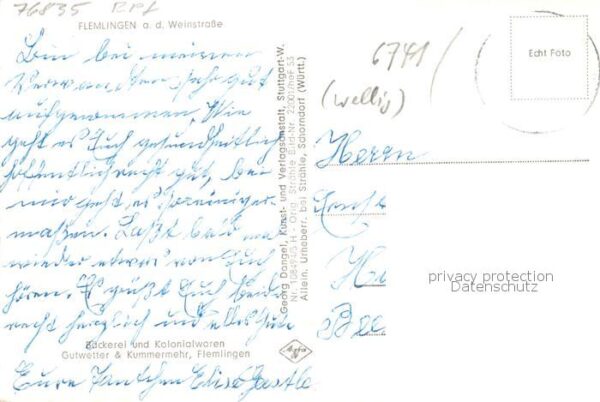 76835 RPf
FLEMLINGEN a. d. Weinstraße
Bin bei meinen
Verwandten sehr gut
aufgenommen. Wie
geht es Euch gesundheitlich
hoffentlich recht gut, bei
mir geht es so einiger-
maßen. Laßt bald mal
wieder etwas von Euch
hören. Es grüßt Euch beide
recht herzlich und alles Gute
Bäckerei und Kolonialwaren
Gutwetter & Kummermehr, Flemlingen
Eure Tantchen Elise
Georg Dangel, Kunst- und Verlagsanstalt, Stuttgart-W.
Orig. Strähle Bild-Nr.
Allein. Urheberr. bei Strähle, Schorndorf (Württ.)
Agfa
6741
(wellig)
Echt Foto
Herrn
privacy protection
Datenschutz